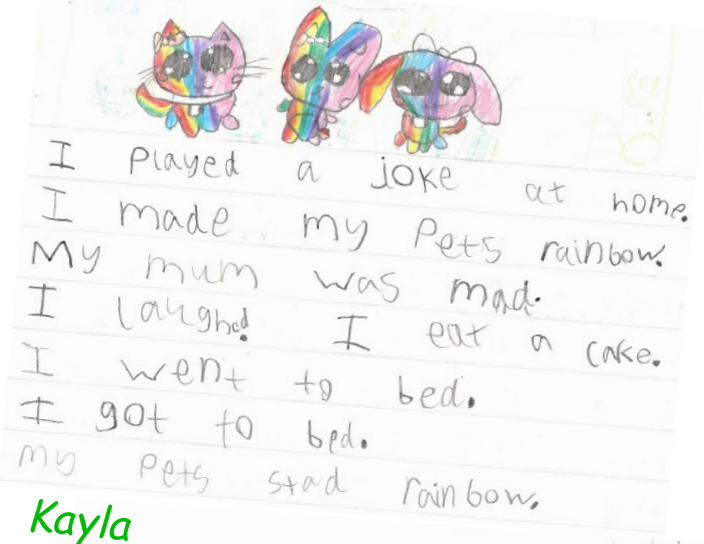 I played a joke at home.
I made my pets rainbow.
My mum was mad.
I laughed. I eat a cake.
I went to bed.
I got to bed.
my pets stad rainbow.
Kayla